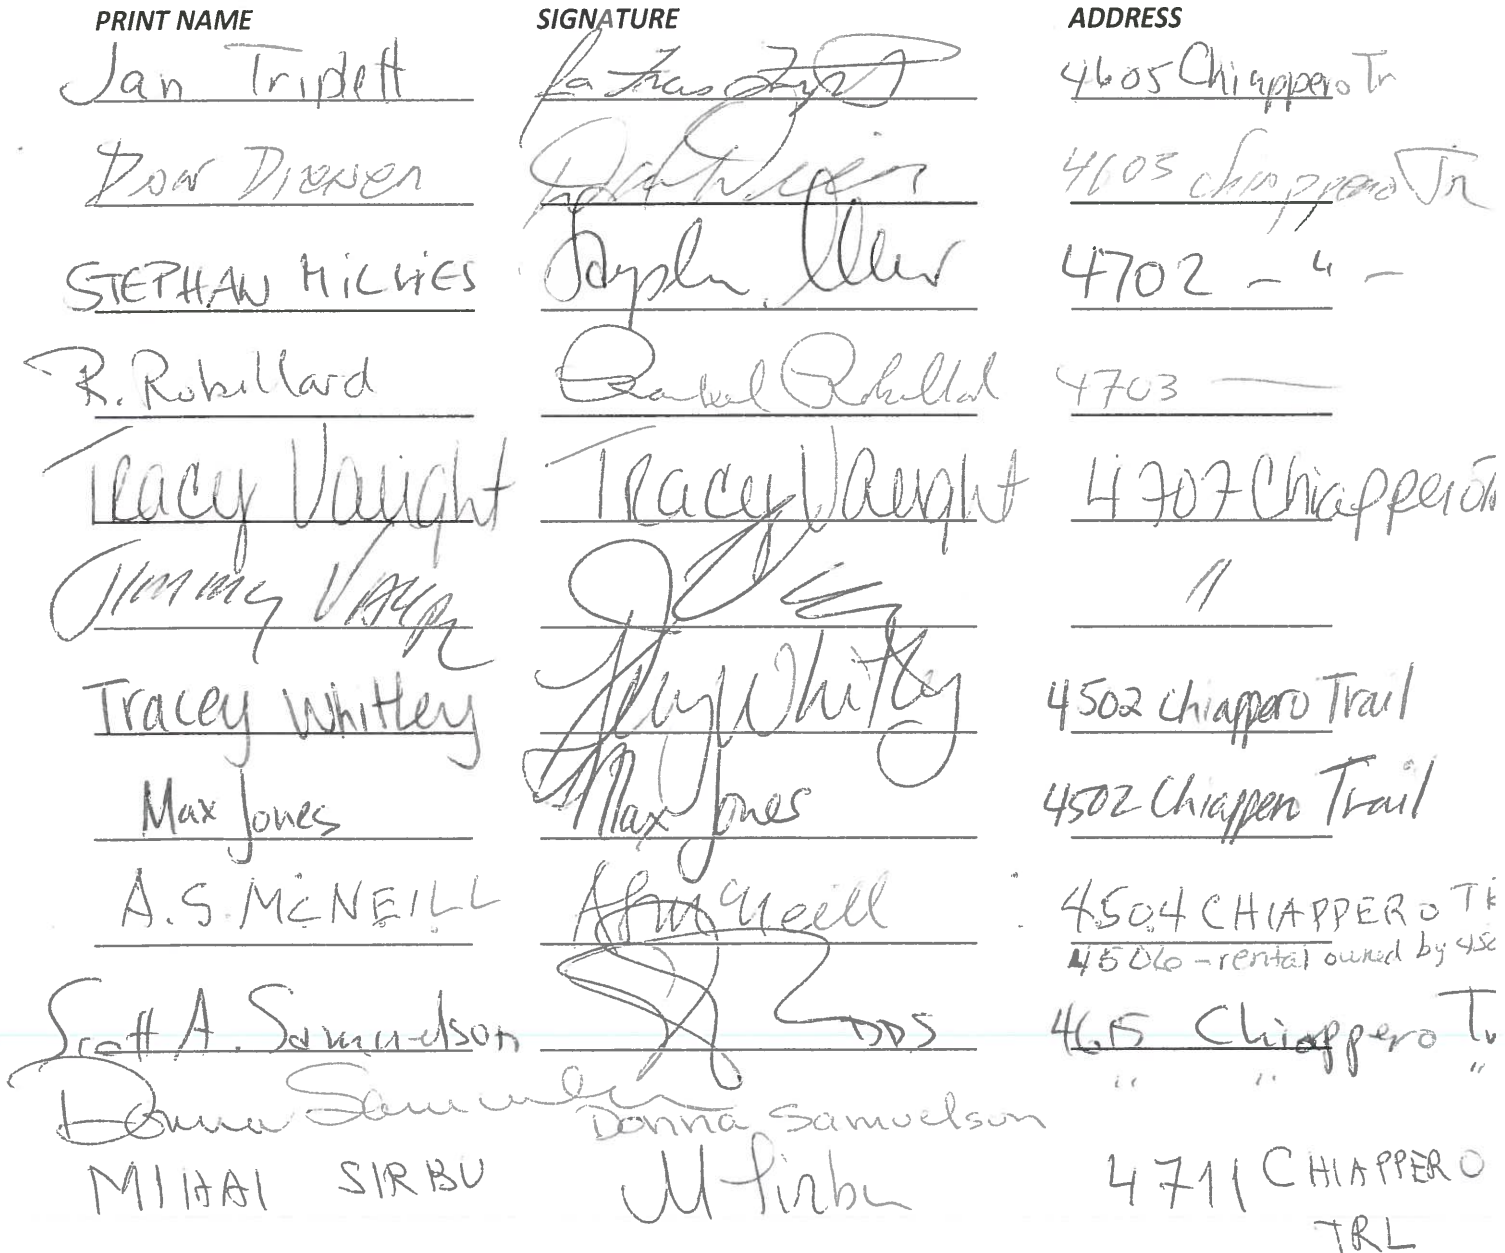 PRINT NAME SIGNATURE ADDRESS
Jan Triplett 4605 Chiappero Tr
Diener 4603 Chiappero Tr
STEPHAN MILVIES 4702 – " –
R. Robillard Rachel Robillard 4703 —
Tracy Vaught Tracy Vaught 4707 Chiappero Tr
Jimmy Vaught "
Tracey Whitley Tracey Whitley 4502 Chiappero Trail
Max Jones Max Jones 4502 Chiappero Trail
A.S. McNEILL AS McNeill 4504 CHIAPPERO TR
4506 – rental owned by 450
Scott A. Samuelson DDS 4615 Chiappero Tr
Donna Samuelson Donna Samuelson " " "
MIHAI SIRBU M Sirbu 4711 CHIAPPERO
TRL